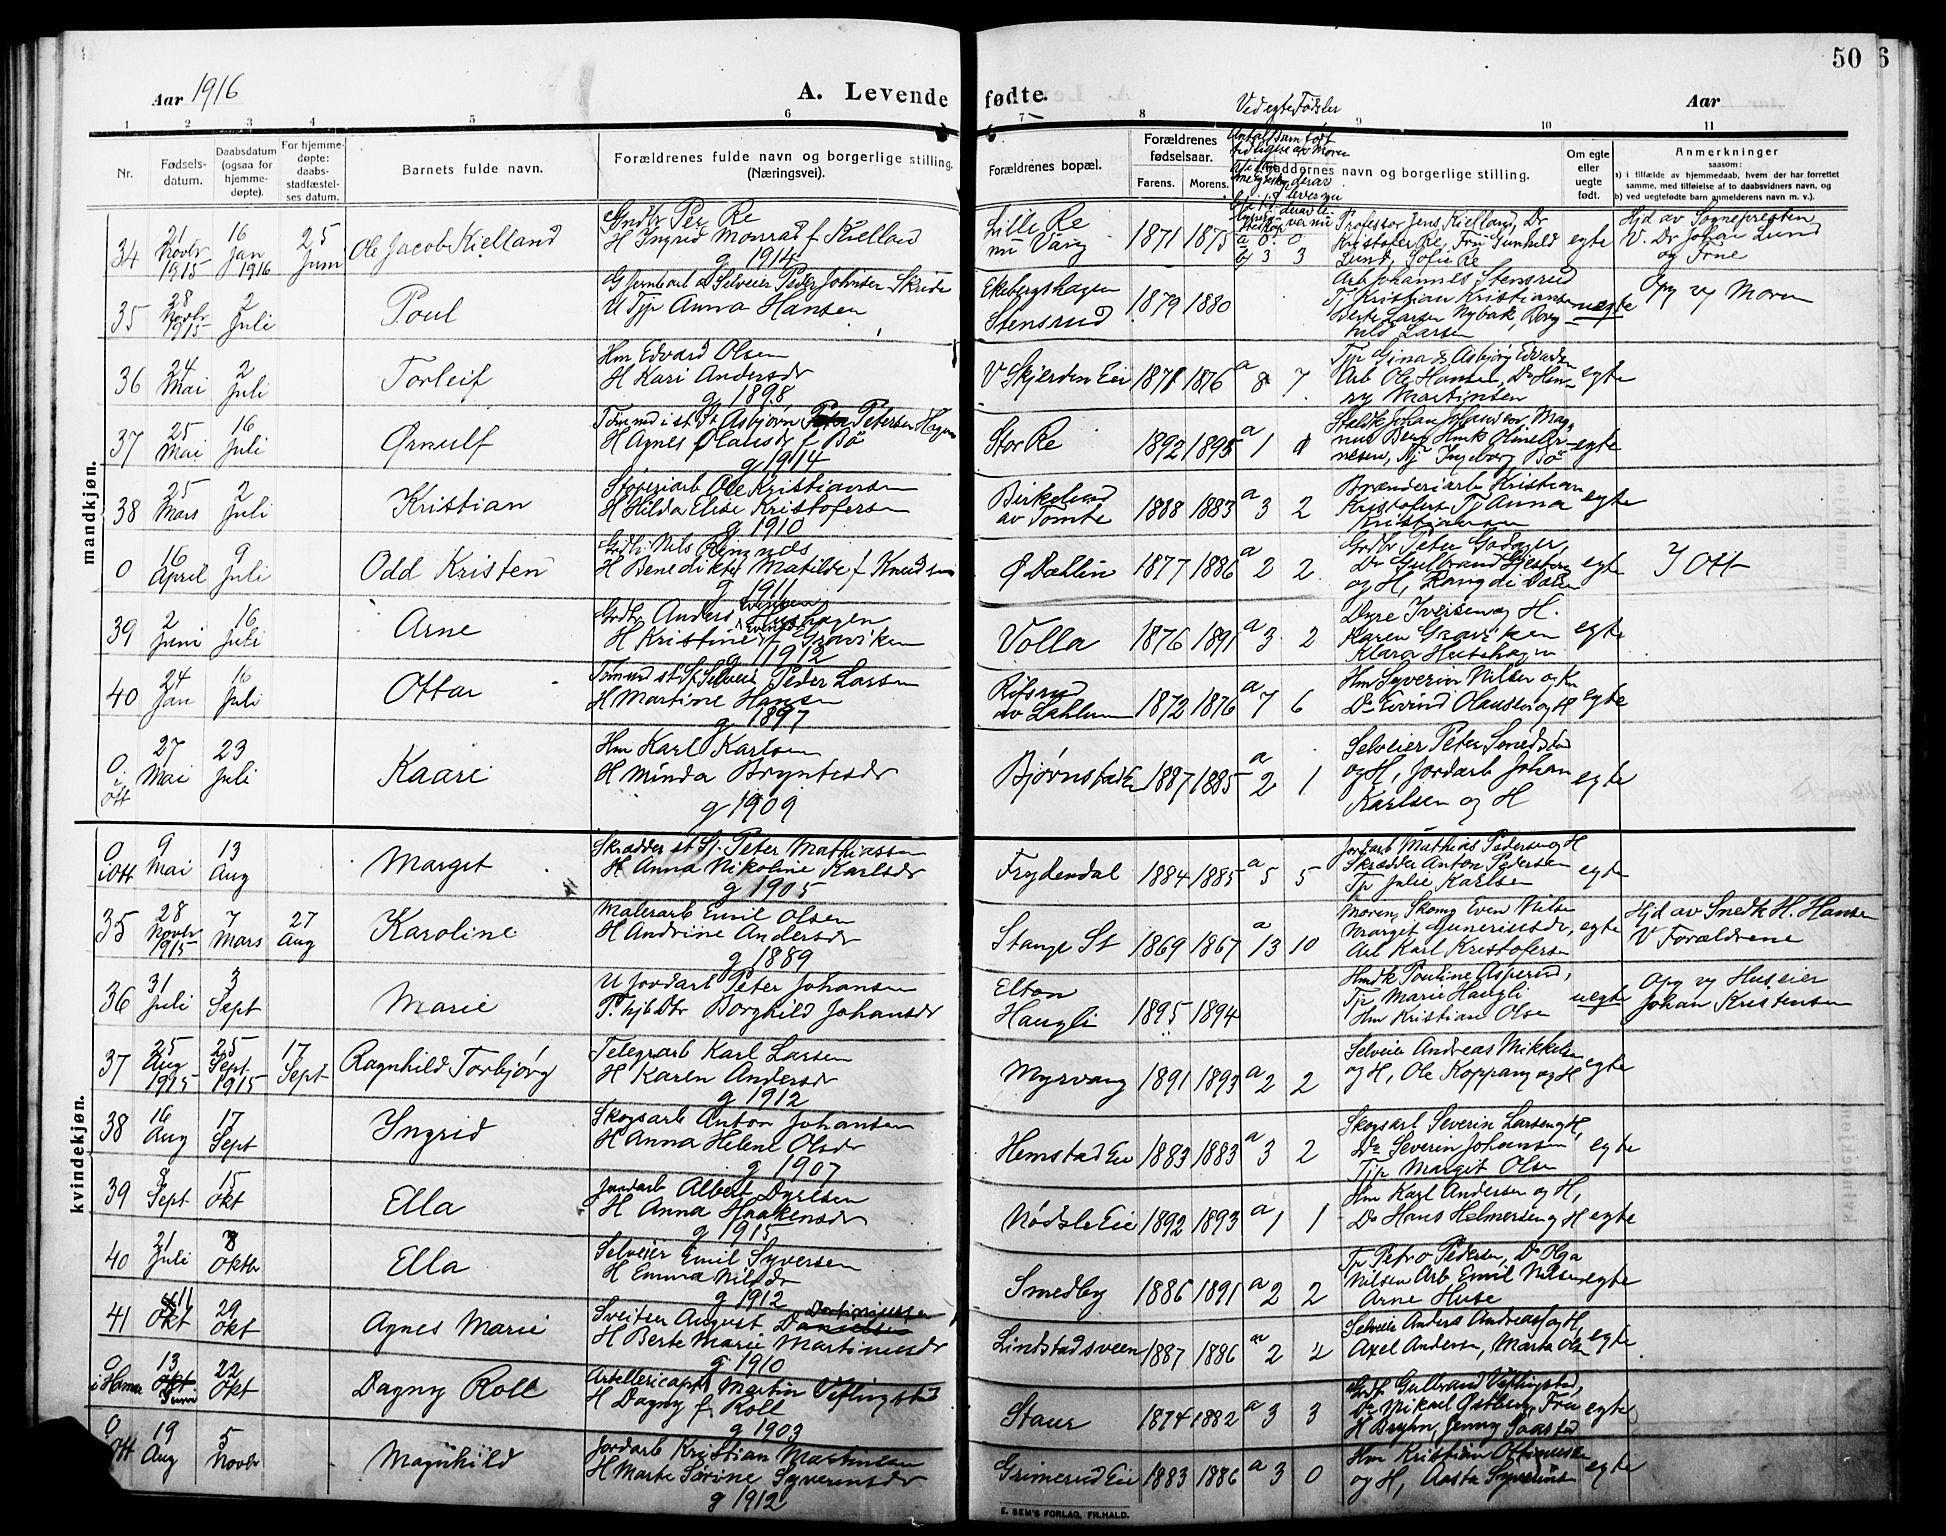 Aar 1916
A. Levende fødte.
Aar
50
6
Ved egte Fødsler
1 2 3 4 5 6 7 8 9 10 11
Nr.
Fødsels-
datum.
Daabsdatum
(ogsaa for
hjemme-
døpte).
For hjemme-
døpte:
daabs-
stadfæstel-
ses datum.
Barnets fulde navn.
Forældrenes fulde navn og borgerlige stilling.
(Næringsvei).
Forældrenes bopæl.
Forældrenes
fødselsaar.
Farens. Morens.
Faddernes navn og borgerlige stilling.
Om egte
eller
uegte
født.
Anmerkninger
saasom:
a) i tilfælde av hjemmedaab, hvem der har forrettet
samme, med tilføielse af to daabsvidners navn, og
b) ved uegtefødte barn anmelderens navn m. v.).
mandkjøn.
34 21 Novbr 1915 16 Jan 1916 25 Juni Ole Jacob Kielland
Gndbr Per Re
H Ingrid Monrad f Kielland
g 1914
Lille Re
nu Vang
1871 1875 a 0 0
b 3 3
Professor Jens Kielland, Dr
Kristofer Re, Fru Gunhild
Lund, Sofie Re
egte
Hjd av Sognepresten
V. Dr Johan Lund
og Frue
35 28 Novbr 1915 2 Juli Poul
G Jernbarb a Selveier Peder Johnsen Skride
U Tjp Anna Hansen
Ekebergshagen
Stensrud
1879 1880
Arb Johannes Stensrud
Tj Kristian Kristiansen
Berte Larsen Nybak, Borg
hild Larsen
uegte
Opg vg Moren
36 24 Mai 2 Juli Torleif
Hm Edvard Olsen
H Kari Andersdr
g 1898
V Skjerden Eie 1871 1876 a 8 7
Tjp Gina & Asbjørg Edvardsen
Arb Ole Hansen, Do Hen-
ry Martinsen
egte
37 25 Mai 16 Juli Ørnulf
Tømmd i st St Asbjørn Petersen Hagen
H Agnes Olausdr f Bø
g 1914
Stor Re 1892 1895 a 1
Ingeborg Bø
egte
38 25 Mars 2 Juli Kristian
Støperiarb Ole Kristiansen
H Hilda Elise Kristofersen
g 1910
Birkelund
av Tomte
1888 1883 a 3 2
Brænderiarb Kristian
Kristofersen Tj Anna
Kristiansen
egte
0 16 April 9 Juli Odd Kristen
Grdbr Nils Ringnes
H Benedikte Matilde f Knudsen
g 1911
Ø Dæhlin 1877 1886 a 2 2
Grdbr Peter Godager,
Do Gulbrand Hjelstrøm
og H, Rangdi Dælin
egte
I Ott
39 2 Juni 16 Juli Arne
Grdbr Anders Evensen Hushagen
H Kristine Evensdr f Graviken
g 1912
Volla 1876 1891 a 3 2
Dyre Iversen og H.
Karen Graviken
Klara Hushagen
egte
40 24 Jan 16 Juli Ottar
Tømmd st St Selveier Peder Larsen
H Martine Hansen
g 1897
Rifsrud
av Dahlum
1872 1876 a 7 6
Hm Syverin Nilsen og Kn
Do Eivind Olausen og H
egte
0 i Ott 27 Mai 23 Juli Kaare
Hm Karl Karlsen
H Minda Bryntesdr
g 1909
Bjørnstad E 1887 1885 a 2 1
Selveier Peter Smedstad
og H, Jordarb Johan
Karlsen og H
egte
kvindekjøn.
0 i Ott 9 Mai 13 Aug Margit
Skrædder st St. Peter Mathiassen
H Anna Nikoline Karlsdr
g 1905
Frydendal 1884 1885 a 5 5
Jordarb Mathias Pedersen og H
Skrædder Anton Pedersen
Tjp Julie Karlsen
egte
35 28 Novbr 1915 7 Mars 27 Aug Karoline
Malerarb Emil Olsen
H Andrine Andersdr
g 1889
Stange St 1869 1867 a 13 10
Moren, Skomg Even Nilsen
Marget Gunerinsdr,
Arb Karl Kristofersen
egte
Hjd av Snedk H. Hansen
V Forældrene
36 31 Juli 3 Sept Marie
U Jordarb Peter Johansen
P. hjb Dtr Borghild Johansdr
Elton
Haugli
1895 1894
Hmdk Pauline Asperud,
Tjp Marie Haugli
Hm Kristian Olsen
uegte
Opg vg Huseier
Johan Kristensen
37 25 Aug 1915 25 Sept 1915 17 Sept Ragnhild Torbjørg
Telegrarb Karl Larsen
H Karen Andersdr
g 1912
Myrvang 1891 1893 a 2 2
Selveier Andreas Mikkelsen
og H, Ole Koppang og H
egte
38 16 Aug 17 Sept Ingrid
Skogsarb Anton Johansen
H Anna Helene Olsdr
g 1907
Hemstad Eie 1883 1883 a 3 2
Skogsarb Severin Larsen og H,
Do Severin Johansen
Tjp Margit Olsen
egte
39 8 Sept 15 Okt Ella
Jordarb Albert Dyresen
H Anna Haakensdr
g 1915
Nødsle Eie 1892 1893 a 1 1
Hm Karl Andersen og H,
Do Hans Helmersen og H
egte
40 21 Juli 8 Oktbr Ella
Selveier Emil Syversen
H Emma Nilsdr
g 1912
Smedby 1886 1891 a 2 2
Tjp Petra Pedersen, Do Olga
Nilsen Arb Emil Nilsen
Arne Huse
egte
41 11 Okt 29 Okt Agnes Marie
Sveitser August Danielsen
H Berte Marie Martinusdr
g 1910
Lindstadsveen 1887 1886 a 2 2
Selveier Anders Andreass og H,
Axel Andersen, Marta Olsen
egte
0 i Hamar 13 Juni 22 Okt Dagny Roll
Artillericapt Martin Veflingstad
H Dagny f. Roll
g 1903
Staur 1874 1882 a 3 3
Grdbr Gulbrand Veflingstad,
Do Mikael Østberg, Fru
H Bryhn, Jenny Saastad
egte
0 Ott 19 Aug 5 Novbr Magnhild
Jordarb Kristian Martinsen
H Marte Sørine Syverensdr
g 1912
Grimerud Eie 1883 1886 a 3 0
Hm Kristian Ottinussen
og H, Aasta Syverinsen
egte
E. SEM'S FORLAG, FR.HALD.